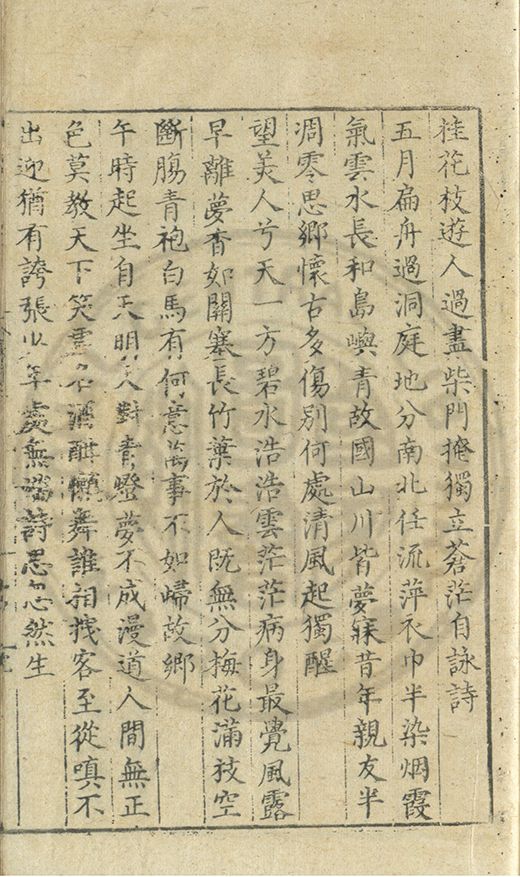 桂花枝遊人過盡柴門掩獨立蒼茫自詠詩
五月扁舟過洞庭地分南北任流萍衣巾半染烟霞
氣雲水長和島嶼青故國山川皆夢寐昔年親友半
凋零思鄉懷古多傷別何處清風起獨醒
望美人兮天一方碧水浩浩雲茫茫病身最覺風露
早離夢杳如關塞長竹葉於人旣無分梅花滿枝空
斷膓青袍白馬有何意萬事不如㱕故鄉
午時起坐自天明共對青燈夢不成漫道人間無正
色莫教天下笑虛名酒酣懶舞誰相拽客至從嗔不
出迎猶有誇張少年處無端詩思忽然生